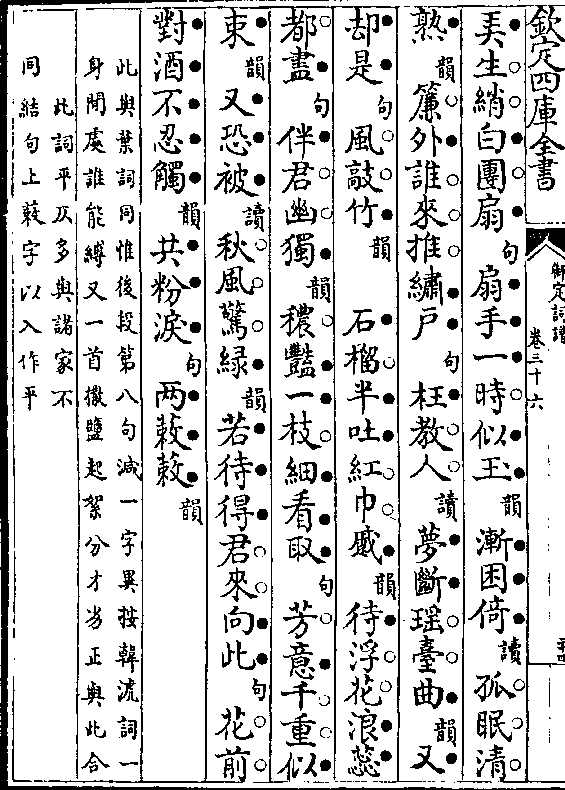 欽定四庫全書
御定詞譜
卷三十六
弄生綃白團扇句扇手一時似玉韻漸困倚讀孤眠清
熟韻簾外誰來推繡戶句枉教人讀夢斷瑶臺曲韻又
却是句風敲竹韻石榴半吐紅巾蹙韻待浮花浪蕊
都盡句伴君幽獨韻穠豔一枝細看取句芳意千重似
束韻又恐被讀秋風驚緑韻若待得君來向此句花前
對酒不忍觸韻共粉淚句两蔌蔌韻
此與葉詞同惟後段第八句減一字異按韓流詞一
身閒處誰能縛又一首撒鹽起絮分才劣正與此合
此詞平仄多與諸家不
同結句上蔌字以入作平